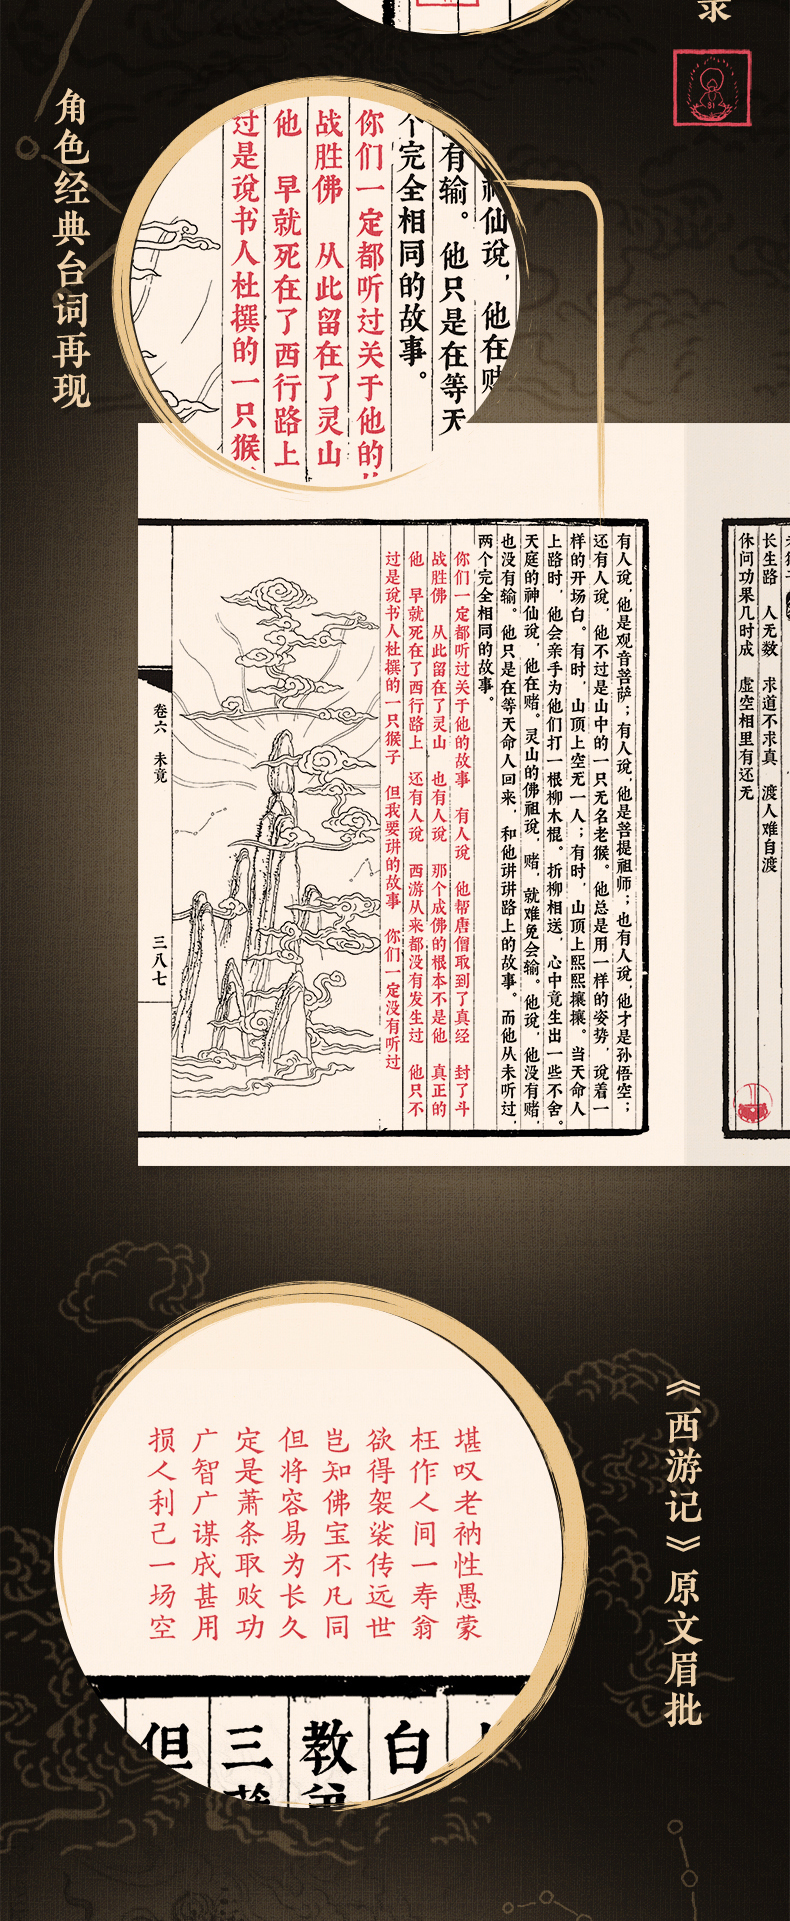 录
角色经典台词再现
神仙说，他在赌
有输。他只是在等天
个完全相同的故事。
你们一定都听过关于他的
战胜佛　从此留在了灵山
他　早就死在了西行路上
过是说书人杜撰的一只猴
长生路　人无数　求道不求真　渡人难自渡
休问功果几时成　虚空相里有还无
有人说，他是观音菩萨；有人说，他是菩提祖师；也有人说，他才是孙悟空；
还有人说，他不过是山中的一只无名老猴。他总是用一样的姿势，说着一
样的开场白。有时，山顶上空无一人；有时，山顶上熙熙攘攘。当天命人
上路时，他会亲手为他们打一根柳木棍。折柳相送，心中竟生出一些不舍。
天庭的神仙说，他在赌。灵山的佛祖说，赌，就难免会输。他说，他没有赌，
也没有输。他只是在等天命人回来，和他讲讲路上的故事。而他从未听过，
两个完全相同的故事。
你们一定都听过关于他的故事　有人说　他帮唐僧取到了真经　封了斗
战胜佛　从此留在了灵山　也有人说　那个成佛的根本不是他　真正的
他　早就死在了西行路上　还有人说　西游从来都没有发生过　他只不
过是说书人杜撰的一只猴子　但我要讲的故事　你们一定没有听过
卷六　未竟
三八七
《西游记》原文眉批
堪叹老衲性愚蒙
枉作人间一寿翁
欲得袈裟传远世
岂知佛宝不凡同
但将容易为长久
定是萧条取败功
广智广谋成甚用
损人利己一场空
白
教
三
但